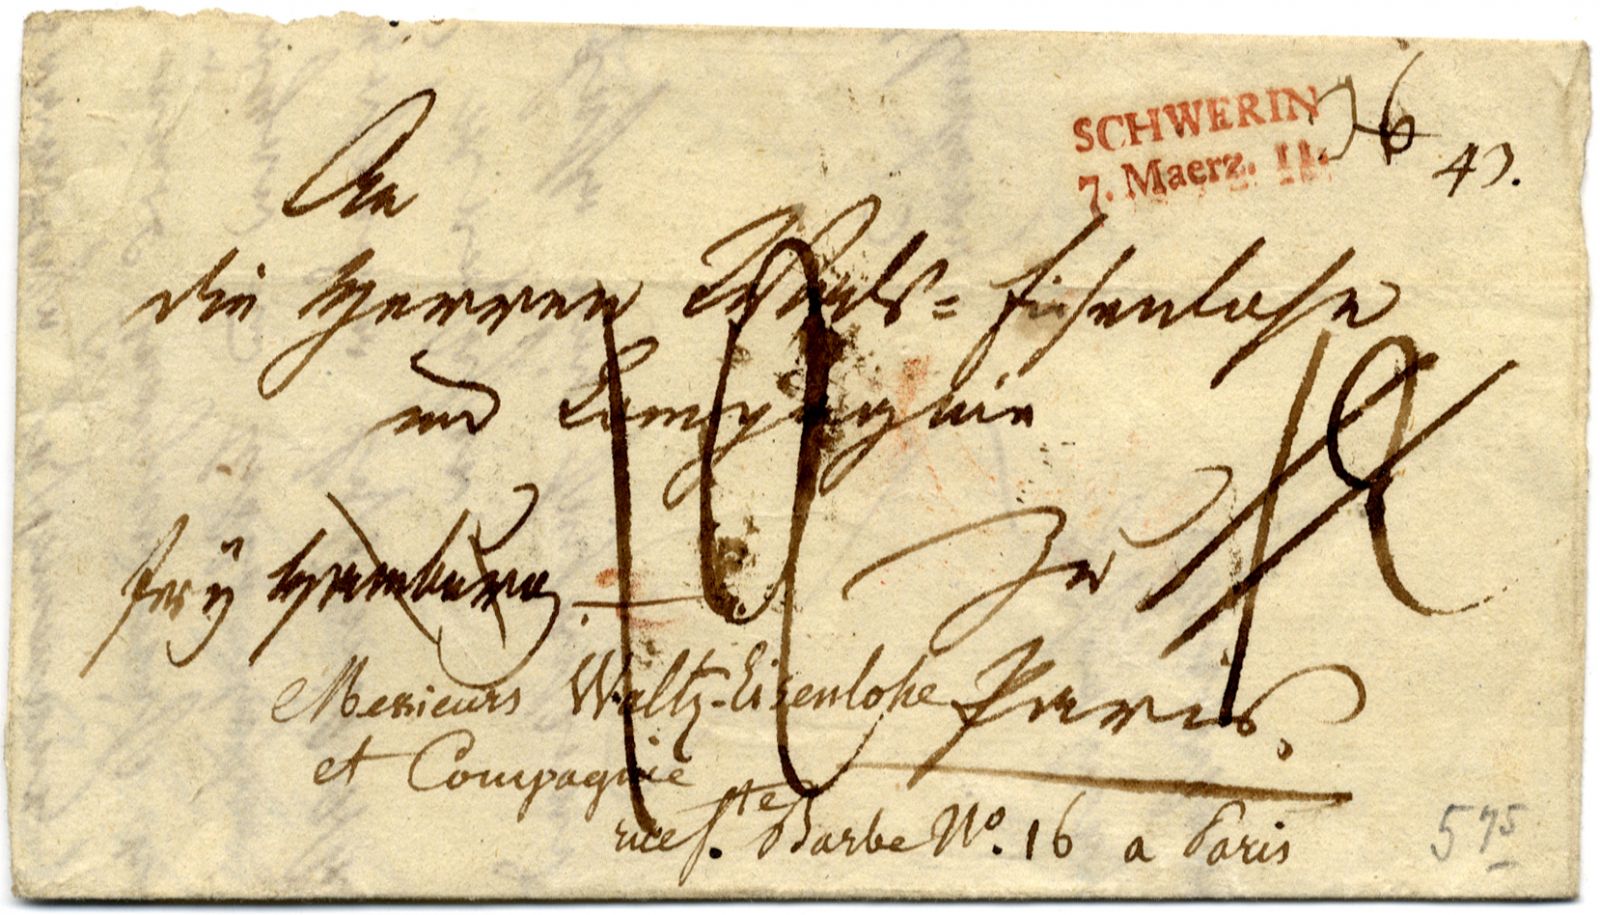 SCHWERIN
7. Maerz. 11.
36
43.
An
die Herren Waltz=Eisenlohe
und Compagnie
fry Hamburg.
10
Zu
Paris.
Messieurs Waltz-Eisenlohe
et Compagnie
rue Ste Barbe No. 16 a Paris
575